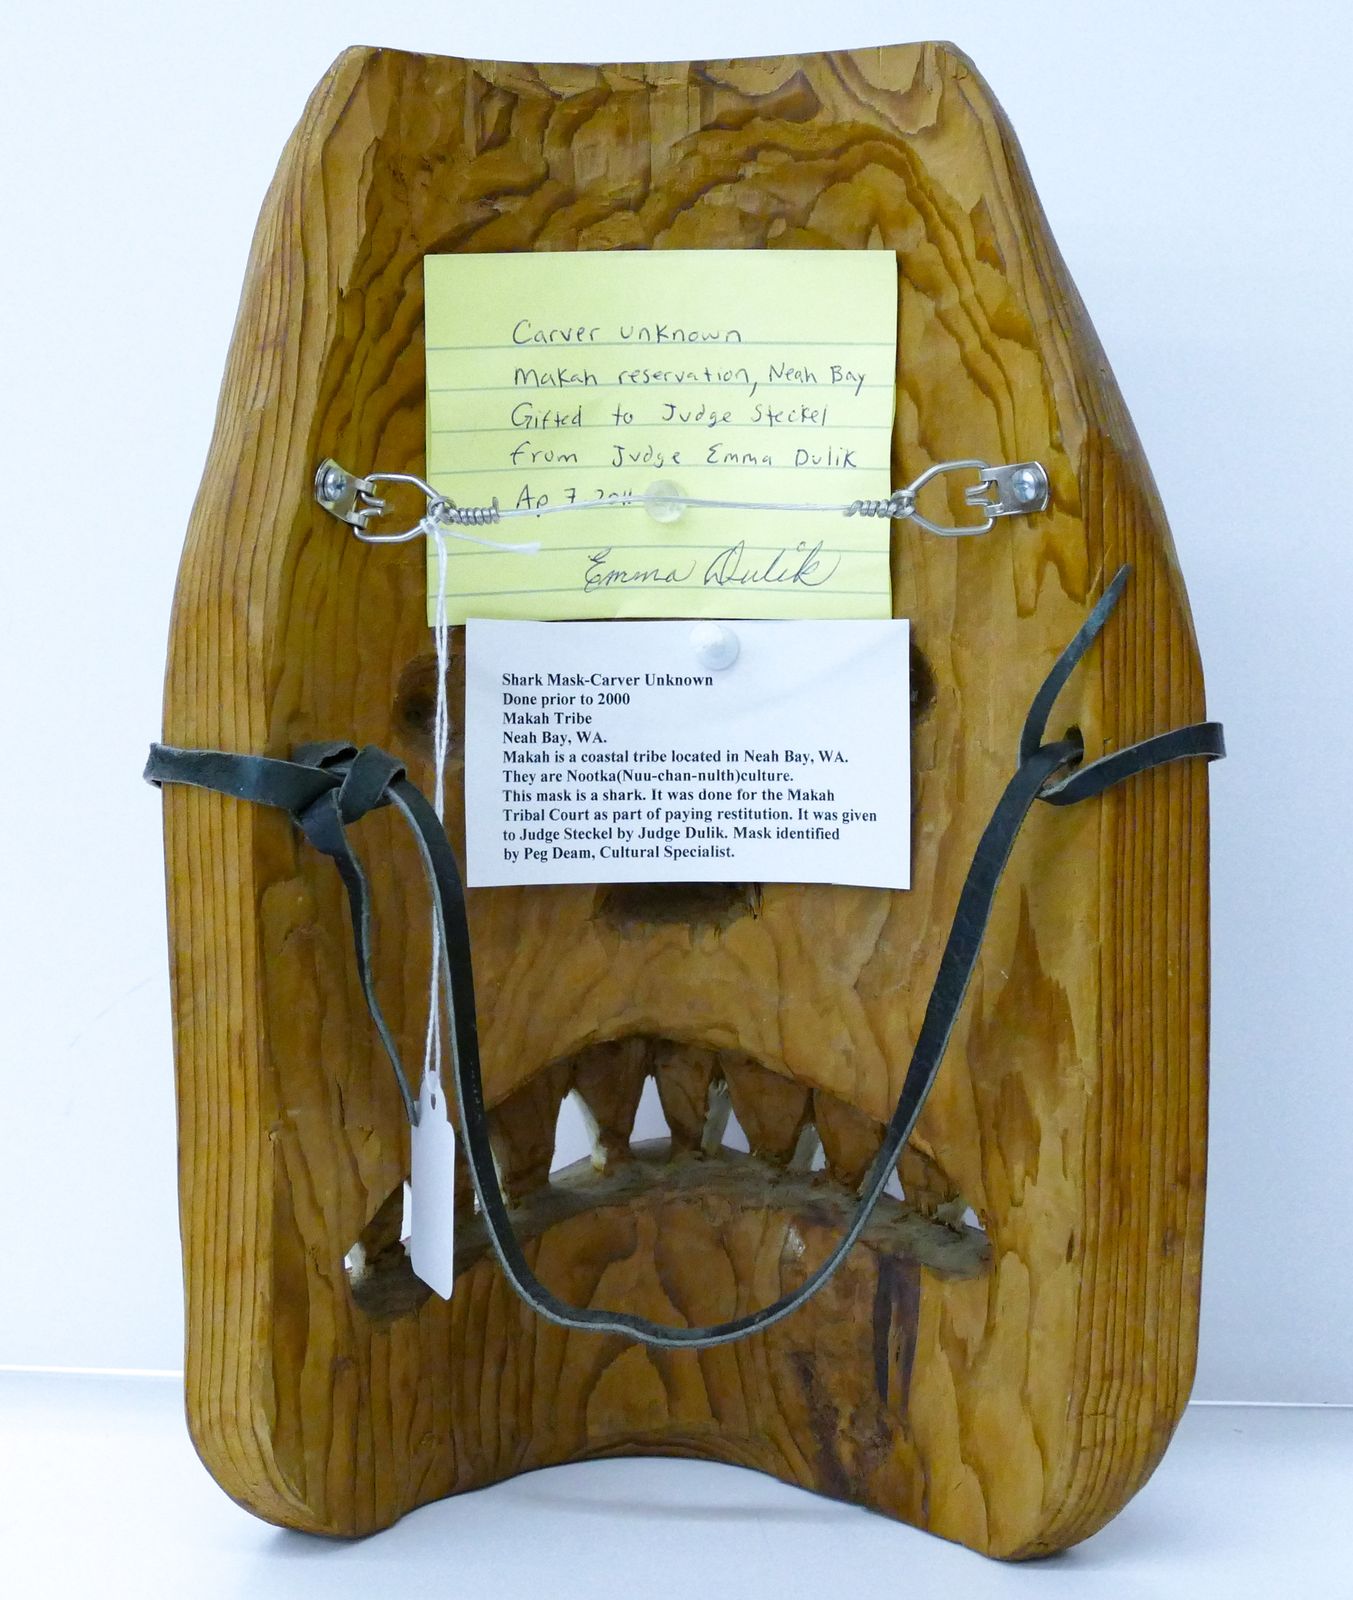 Carver unknown
Makah reservation, Neah Bay
Gifted to Judge Steckel
from Judge Emma Dulik
Ap 7 2011
Emma Dulik
Shark Mask-Carver Unknown
Done prior to 2000
Makah Tribe
Neah Bay, WA.
Makah is a coastal tribe located in Neah Bay, WA.
They are Nootka(Nuu-chan-nulth)culture.
This mask is a shark. It was done for the Makah
Tribal Court as part of paying restitution. It was given
to Judge Steckel by Judge Dulik. Mask identified
by Peg Deam, Cultural Specialist.